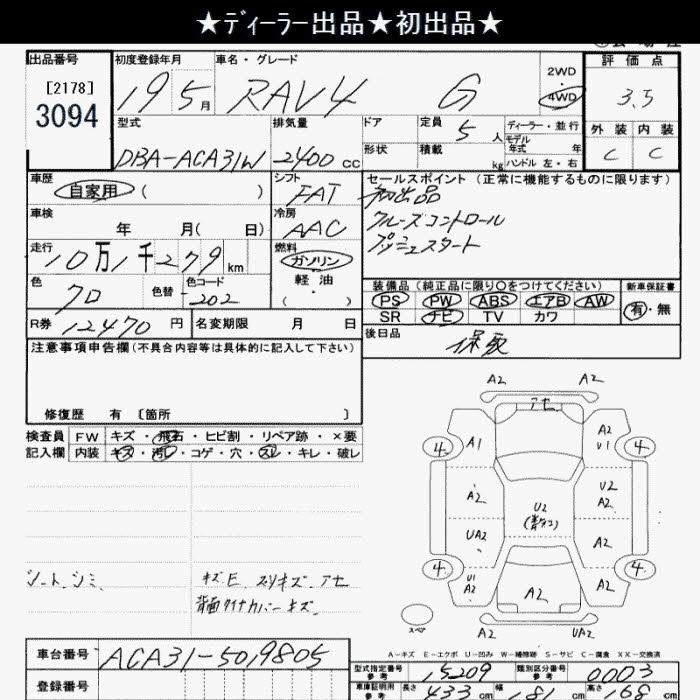 ★ディーラー出品★初出品★
出品番号 初度登録年月 車名・グレード 2WD・4WD 評価点
[2178]
3094 19 5月 RAV4 G 3.5
型式 排気量 ドア 定員 5人 ディーラー・並行 外装 内装
DBA-ACA31W 2400cc 形状 積載 kg モデル年式 年 ハンドル 左・右 C C
車歴 自家用 ( ) シフト FAT セールスポイント (正常に機能するものに限ります)
初出品
車検 年 月( 日) 冷房 AAC クルーズコントロール
プッシュスタート
走行 10万1千279km 燃料 ガソリン・軽油・( )
色 クロ 色替 色コード 202 装備品 (純正品に限り○をつけてください) 新車保証書
PS PW ABS エアB AW 有・無
SR ナビ TV カワ
R券 12470円 名変期限 月 日 後日品 保取
注意事項申告欄 (不具合内容等は具体的に記入して下さい)
修復歴 有 〔箇所 〕
検査員記入欄 FW キズ・飛石・ヒビ割・リペア跡・×要
内装 キズ・汚レ・コゲ・穴・スレ・キレ・破レ
A2 A2
アセ
4 A1 A2 U1 4
A2 U2 U2 A2
UA2 A2
4 U1 A2 A2 A2 4
スペア A2 UA2
シート シミ キズE スリキズ アセ
背面タイヤカバーキズ
A-キズ E-エクボ U-凹み W-補修跡 S-サビ C-腐食 XX-交換済
車台番号 ACA31-5019805
型式指定番号 参考 15209 類別区分番号 参考 0003
登録番号 車庫証明用 参考 長さ 433cm 幅 181cm 高さ 68cm